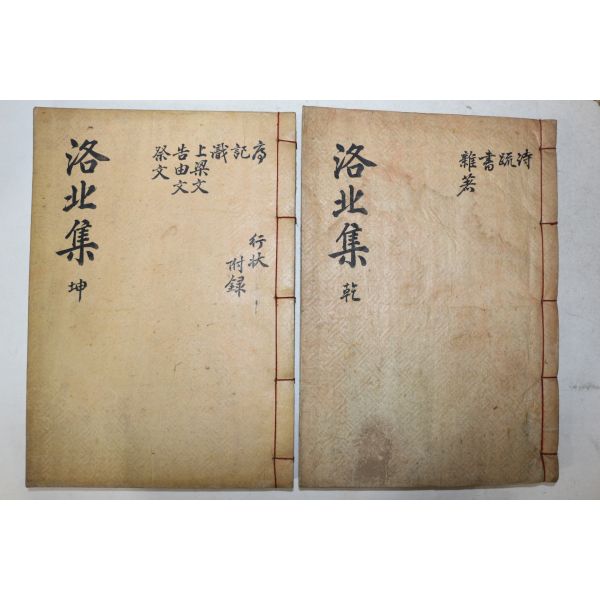 詩
疏
書
雜著
洛北集 乾
序
記
上梁文
告由文
祭文
行状
附録
洛北集 坤